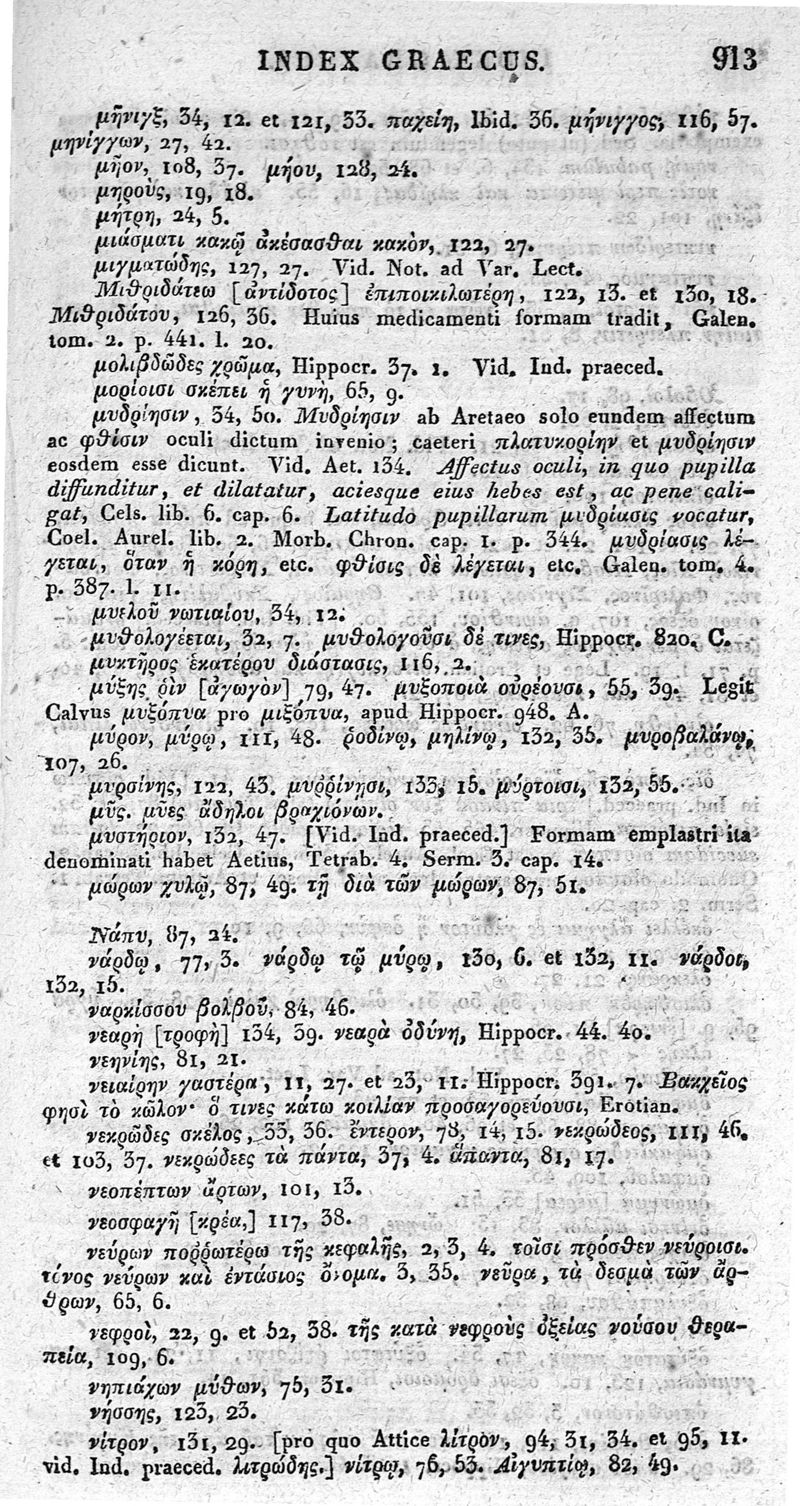 INDEX GRAECUS. 913
μῆνιγξ, 34, 12. et 121, 33. παχείη, Ibid. 36. μήνιγγος, 116, 57.
μηνίγγων, 27, 42.
μῆον, 108, 37. μήου, 128, 24.
μηροὺς, 19, 18.
μήτρη, 24, 5.
μιάσματι κακῷ ἀκέσασθαι κακὸν, 122, 27.
μιγματώδης, 127, 27. Vid. Not. ad Var. Lect.
Μιθριδάτεω [ἀντίδοτος] ἐπιποικιλωτέρη, 122, 13. et 130, 18.
Μιθριδάτου, 126, 36. Huius medicamenti formam tradit, Galen.
tom. 2. p. 441. l. 20.
μολιβδῶδες χρῶμα, Hippocr. 37. 1. Vid. Ind. praeced.
μορίοισι σκέπει ἡ γυνὴ, 65, 9.
μυδρίησιν, 34, 50. Μυδρίησιν ab Aretaeo solo eundem affectum
ac φθίσιν oculi dictum invenio; caeteri πλατυκορίην et μυδρίησιν
eosdem esse dicunt. Vid. Aet. 134. Affectus oculi, in quo pupilla
diffunditur, et dilatatur, aciesque eius hebes est, ac pene cali-
gat, Cels. lib. 6. cap. 6. Latitudo pupillarum μυδρίασις vocatur,
Coel. Aurel. lib. 2. Morb. Chron. cap. 1. p. 344. μυδρίασις λέ-
γεται, ὅταν ἡ κόρη, etc. φθίσις δὲ λέγεται, etc. Galen. tom. 4.
p. 387. l. 11.
μυελοῦ νωτιαίου, 34, 12.
μυθολογέεται, 32, 7. μυθολογοῦσι δέ τινες, Hippocr. 820. C.
μυκτῆρος ἑκατέρου διάστασις, 116, 2.
μύξης ῥὶν [ἀγωγὸν] 79, 47. μυξοποιὰ οὐρέουσι, 55, 39. Legit
Calvus μυξόπυα pro μιξόπυα, apud Hippocr. 948. A.
μύρον, μύρῳ, 111, 48. ῥοδίνῳ, μηλίνῳ, 132, 35. μυροβαλάνῳ,
107, 26.
μυρσίνης, 122, 43. μυῤῥίνησι, 133, 15. μύρτοισι, 132, 55.
μῦς. μῦες ἄδηλοι βραχιόνων.
μυστήριον, 132, 47. [Vid. Ind. praeced.] Formam emplastri ita
denominati habet Aetius, Tetrab. 4. Serm. 3. cap. 14.
μώρων χυλῷ, 87, 49. τῇ διὰ τῶν μώρων, 87, 51.
Νάπυ, 87, 24.
νάρδῳ, 77, 3. νάρδῳ τῷ μύρῳ, 130, 6. et 132, 11. νάρδοι,
132, 15.
ναρκίσσου βολβοῦ, 84, 46.
νεαρὴ [τροφὴ] 134, 39. νεαρὰ ὀδύνη, Hippocr. 44. 40.
νεηνίης, 81, 21.
νειαίρην γαστέρα, 11, 27. et 23, 11. Hippocr. 391. 7. Βακχεῖος
φησὶ τὸ κῶλον· ὅ τινες κάτω κοιλίαν προσαγορεύουσι, Erotian.
νεκρῶδες σκέλος, 33, 36. ἔντερον, 78, 14, 15. νεκρώδεος, 111, 46.
et 103, 37. νεκρώδεες τὰ πάντα, 37, 4. ἅπαντα, 81, 17.
νεοπέπτων ἄρτων, 101, 13.
νεοσφαγῆ [κρέα,] 117, 38.
νεύρων ποῤῥωτέρω τῆς κεφαλῆς, 2, 3, 4. τοῖσι πρόσθεν νεύροισι.
τίνος νεύρων καὶ ἐντάσιος ὄνομα. 3, 35. νεῦρα, τὰ δεσμὰ τῶν ἄρ-
θρων, 65, 6.
νεφροὶ, 22, 9. et 52, 38. τῆς κατὰ νεφροὺς ὀξείας νούσου θερα-
πεία, 109, 6.
νηπιάχων μύθων, 75, 31.
νήσσης, 123, 23.
νίτρον, 131, 29. [pro quo Attice λίτρὸν, 94, 31, 34. et 95, 11.
vid. Ind. praeced. λιτρώδης.] νίτρῳ, 76, 53. Αἰγυπτίῳ, 82, 49.